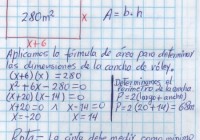 280m² x A = b·h
x+6
Aplicamos la fórmula de área para determinar
las dimensiones de la cancha de vóley.
(x+6)(x) = 280
x²+6x-280=0
(x+20)(x-14)=0
x+20=0 ∧ x-14=0
x=-20 x=14
Determinamos el
perímetro de la cancha
P=2(largo+ancho)
P=2(20+14)=68m
Rpta: La cinta debe medir como mínimo